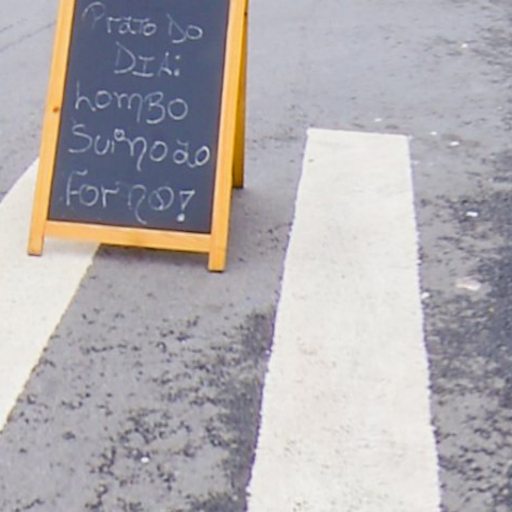 Prato Do
DIA:
LomBo
Suino ao
Forno!